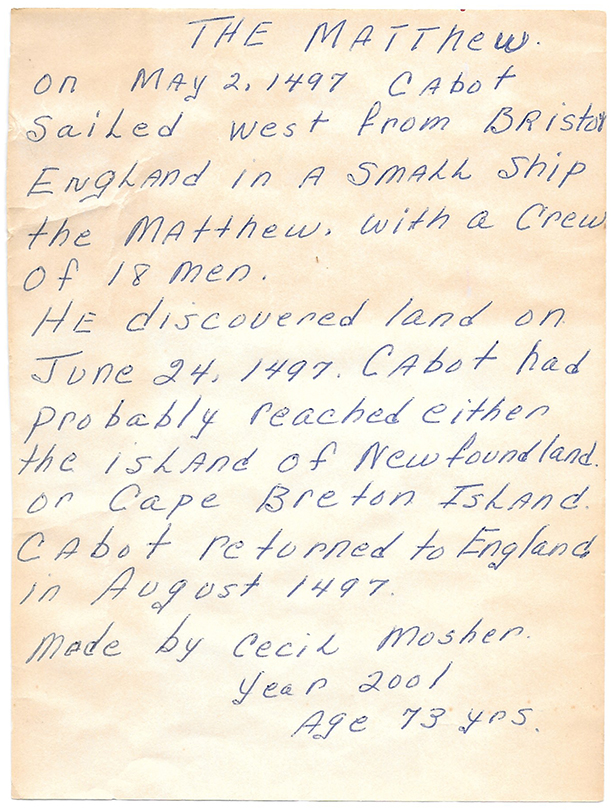 THE MATThew.
on MAy 2, 1497 CAbot
SaiLed west from BRistol
ENgLAnd in A SMALL Ship
the MAtthew. with a Crew
Of 18 men.
HE discovered land on
June 24, 1497. CAbot had
probably reached either
the isLAnd of Newfoundland.
or Cape Breton ISLAND.
CAbot returned to England
in August 1497.
Made by CeciL Mosher.
Year 2001
Age 73 yrs.